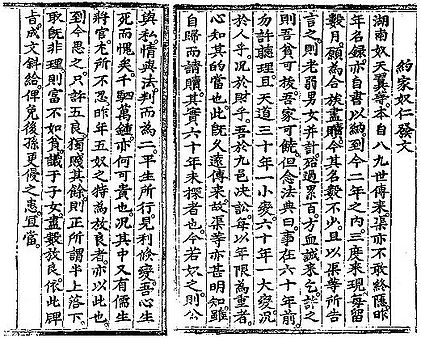 約家奴仁發文
湖南奴天翼等本自八九世傳来渠亦不敢終隱昨
年名錄亦自書以納到今二年之內三度来現每留
數月願為合族盡贖今其名數不少且以渠等所告
言之則老弱男女并計殆過累百方血誠来乞諾之
則吾貧可救吾家可饒但念法典曰事在六十年前
勿許聽理且天道三十年一小變六十年一大變況
於人乎況於財乎吾於九邑決訟每以年限為重者
心知其的當也此旣久遠傳来故渠等亦甚明知雖
自歸而請贖其實六十年未推者也今若奴之則公
與私情與法判而為二平生所行見利倏變吾心生
死而愧矣千駟萬鍾亦何可貴也況其中又有儒生
將官尤所不忍昨年五奴之特為放良者亦以此也
到今思之只許五良獨贖其餘則正所謂半上落下
取旣非理則富不如貧議于子女盡數放良依此牌
吉成文斜給俾免後孫更侵之患宜當